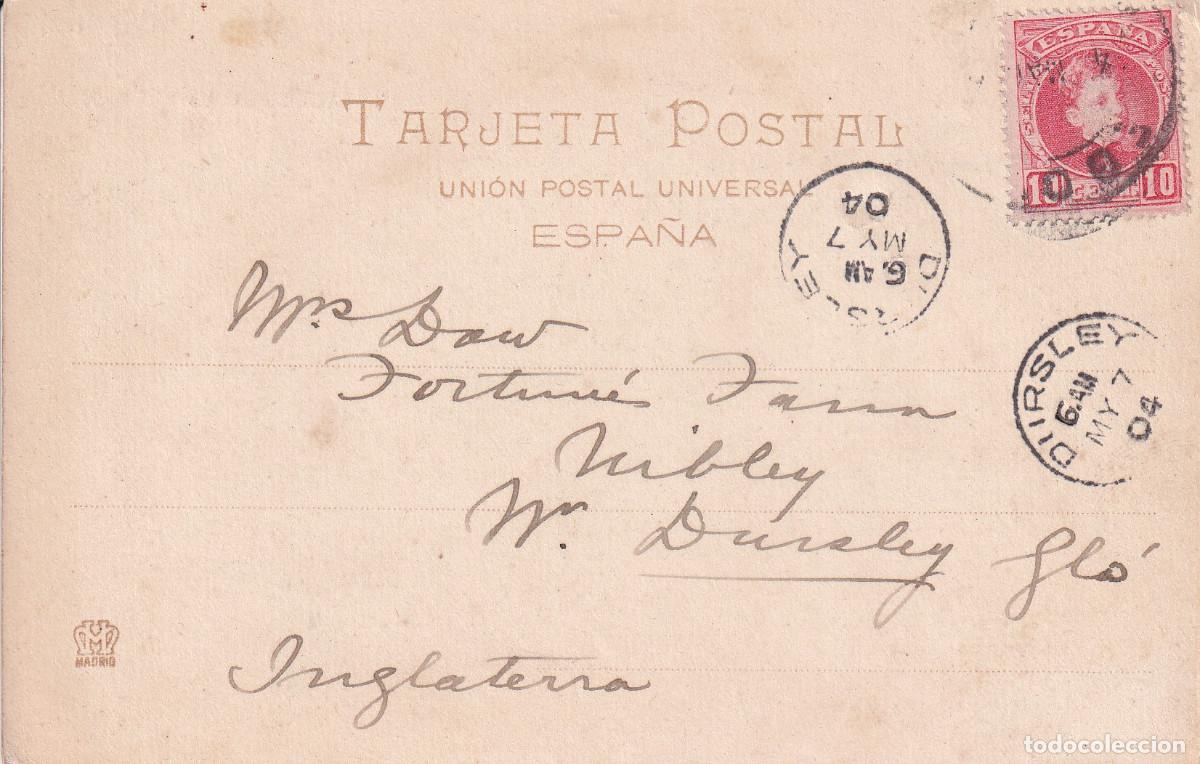 TARJETA POSTAL
UNIÓN POSTAL UNIVERSAL
ESPAÑA
ESPAÑA
10 10
DURSLEY
6.AM
MY 7
04
DURSLEY
6.AM
MY 7
04
Mrs Daw
Fortune's Farm
Nibley
Nr. Dursley Glo'
Inglaterra
MADRID
todocoleccion